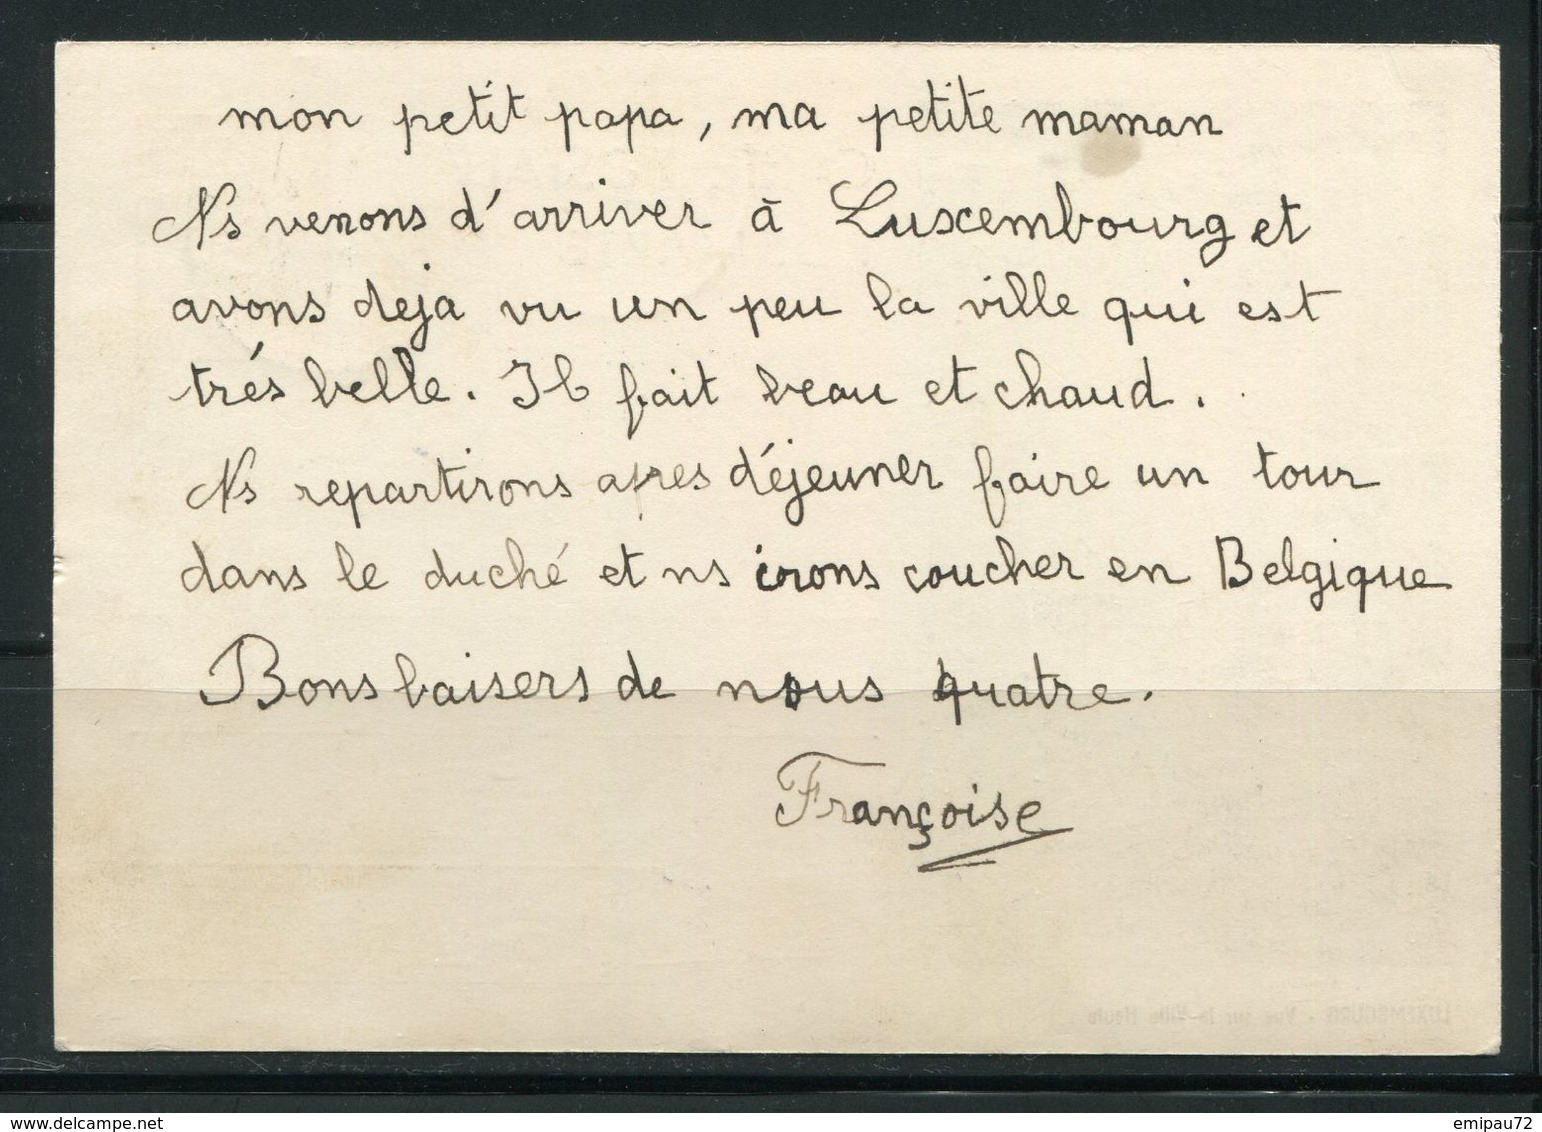 mon petit papa, ma petite maman
Ns venons d'arriver à Luxembourg et
avons deja vu un peu la ville qui est
trés belle. Il fait beau et chaud.
Ns repartirons apres déjeuner faire un tour
dans le duché et ns irons coucher en Belgique
Bons baisers de nous quatre.
Françoise
LUXEMBOURG - Vue sur la Ville Haute
emipau72